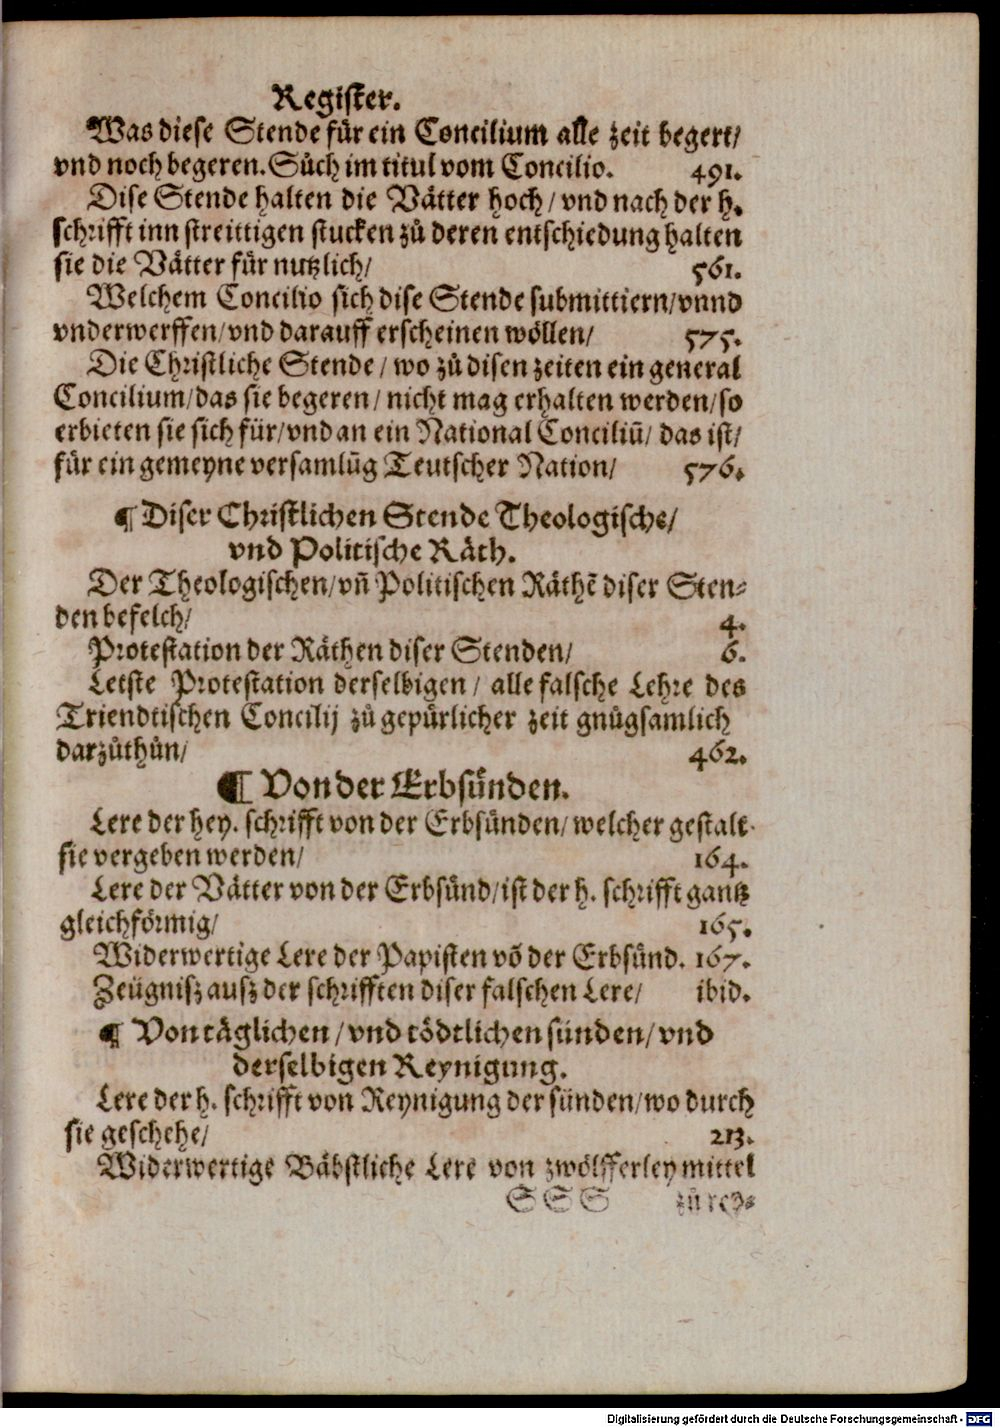 Register.
Was diese Stende für ein Concilium alle zeit begert/
vnd noch begeren. Sůch im titul vom Concilio. 491.
Dise Stende halten die Vätter hoch/ vnd nach der h.
schrifft inn streittigen stucken zů deren entschiedung halten
sie die Vätter für nutzlich/ 561.
Welchem Concilio sich dise Stende submittiern/ vnnd
vnderwerffen/ vnd darauff erscheinen wöllen/ 575.
Die Christliche Stende/ wo zů disen zeiten ein general
Concilium/ das sie begeren/ nicht mag erhalten werden/ so
erbieten sie sich für/ vnd an ein National Conciliū/ das ist/
für ein gemeyne versamlūg Teutscher Nation/ 576.
¶ Diser Christlichen Stende Theologische/
vnd Politische Räth.
Der Theologischen/ vñ Politischen Räthē diser Sten⸗
den befelch/ 4.
Protestation der Räthen diser Stenden/ 6.
Letste Protestation derselbigen/ alle falsche Lehre des
Triendtischen Concilij zů gepürlicher zeit gnůgsamlich
darzůthůn/ 462.
¶ Von der Erbsünden.
Lere der hey. schrifft von der Erbsünden/ welcher gestalt
sie vergeben werden/ 164.
Lere der Vätter von der Erbsünd/ ist der h. schrifft gantz
gleichförmig/ 165.
Widerwertige Lere der Papisten vō der Erbsünd. 167.
Zeügnisz ausz der schrifften diser falschen Lere/ ibid.
¶ Von täglichen/ vnd tödtlichen sünden/ vnd
derselbigen Reynigung.
Lere der h. schrifft von Reynigung der sünden/ wo durch
sie geschehe/ 213.
Widerwertige Bäbstliche Lere von zwölfferley mittel
SSS zů rey⸗
Digitalisierung gefördert durch die Deutsche Forschungsgemeinschaft - DFG